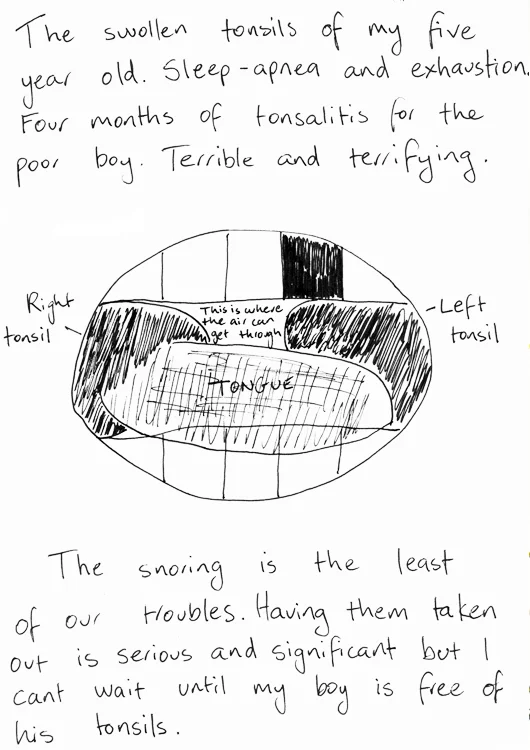 The swollen tonsils of my five
year old. Sleep-apnea and exhaustion.
Four months of tonsalitis for the
poor boy. Terrible and terrifying.
Right
tonsil
This is where
the air can
get through
Left
tonsil
TONGUE
The snoring is the least
of our troubles. Having them taken
out is serious and significant but I
cant wait until my boy is free of
his tonsils.